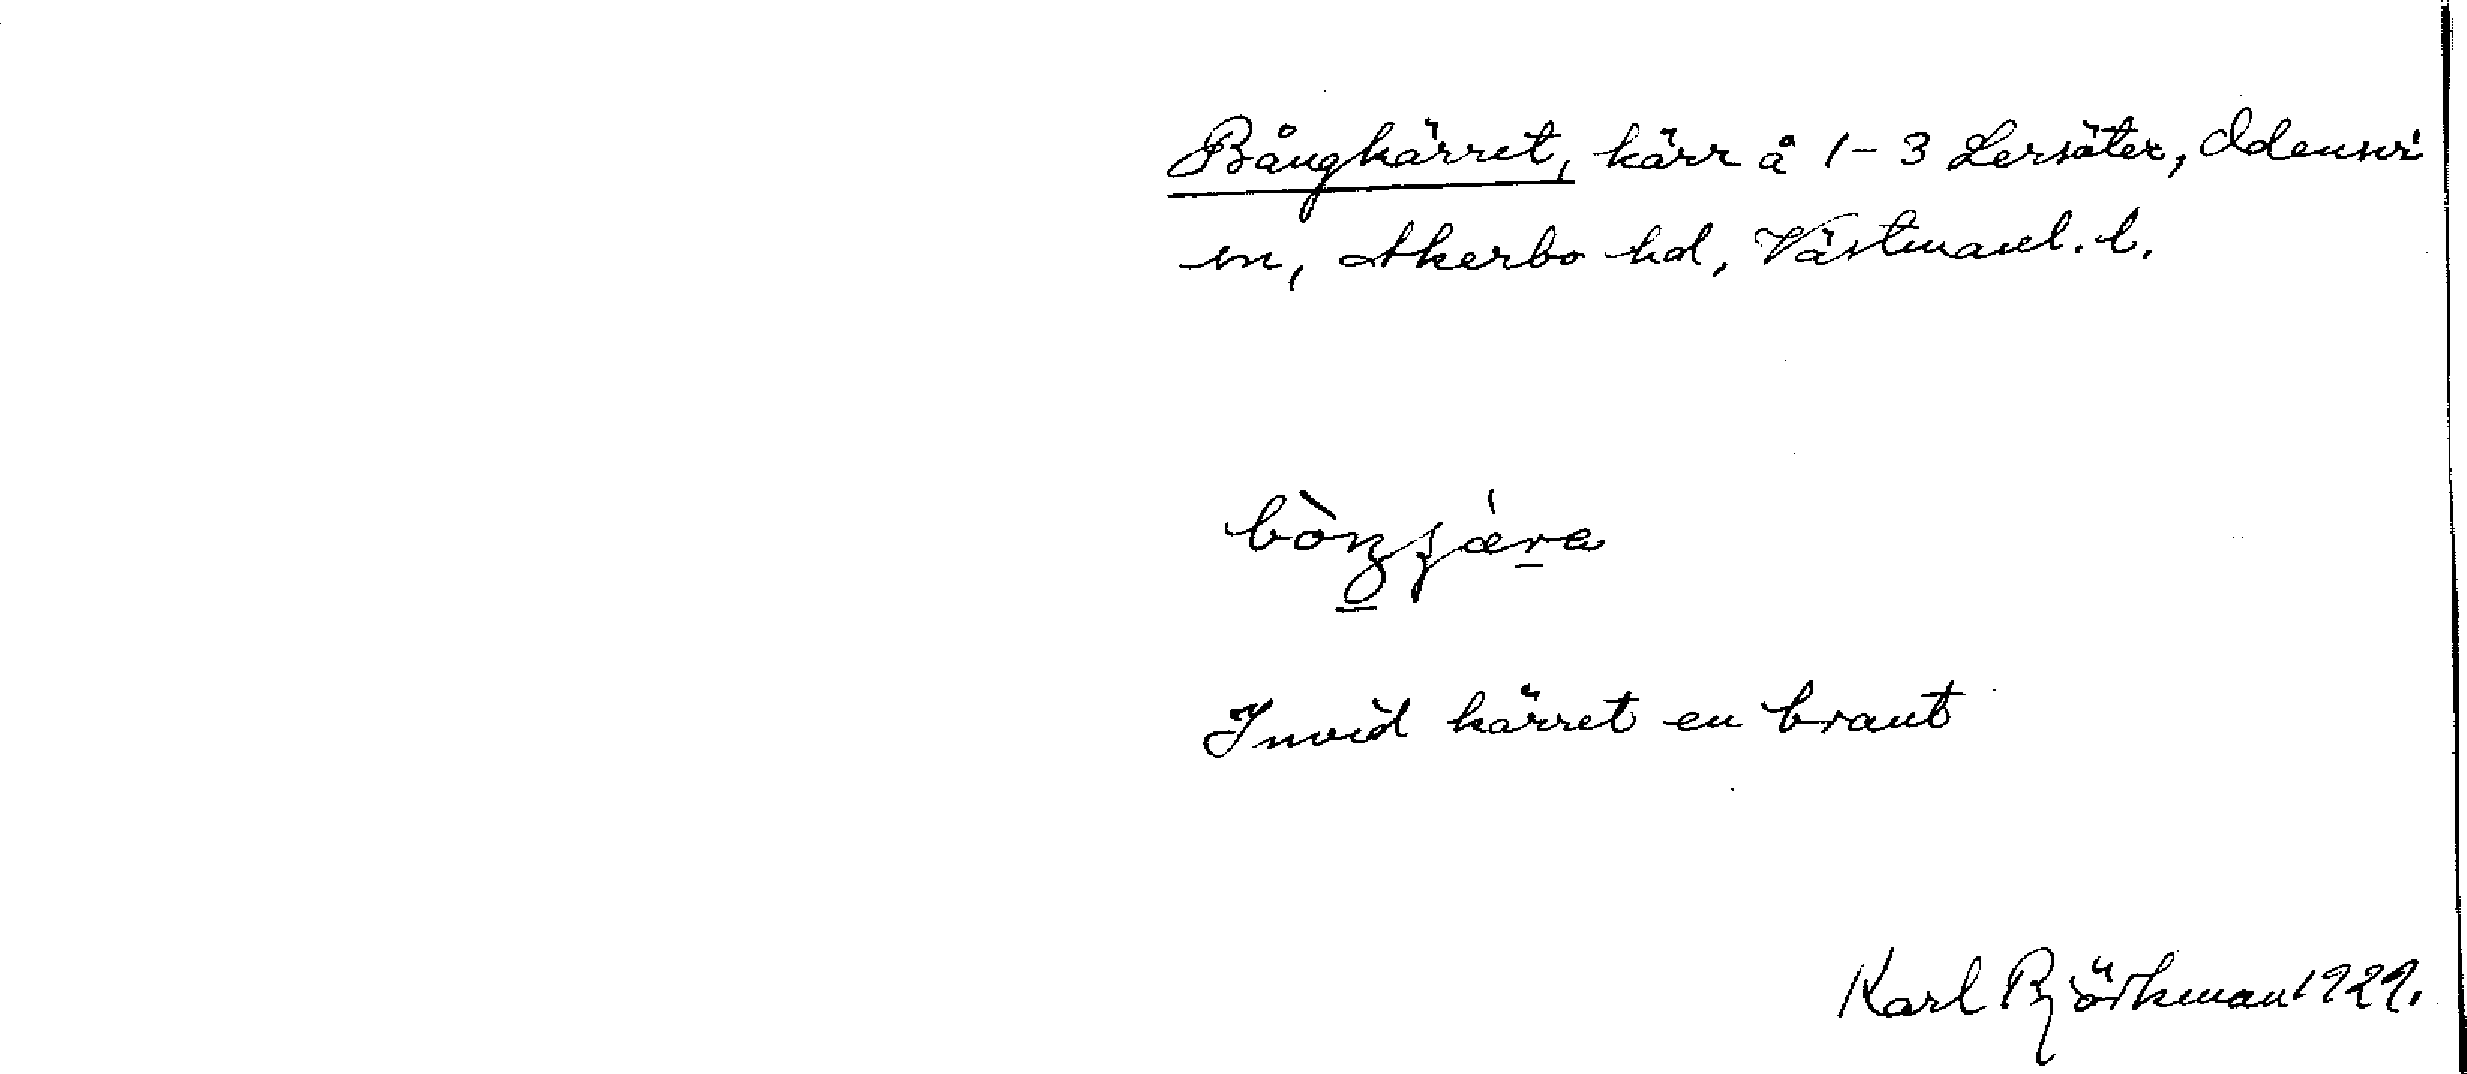 Bångkärret, kärr å 1-3 Lersäter, Odensvi
sn, Åkerbo hd, Västmanl. l.
Invid kärret en brant
Karl Björkman 1929.